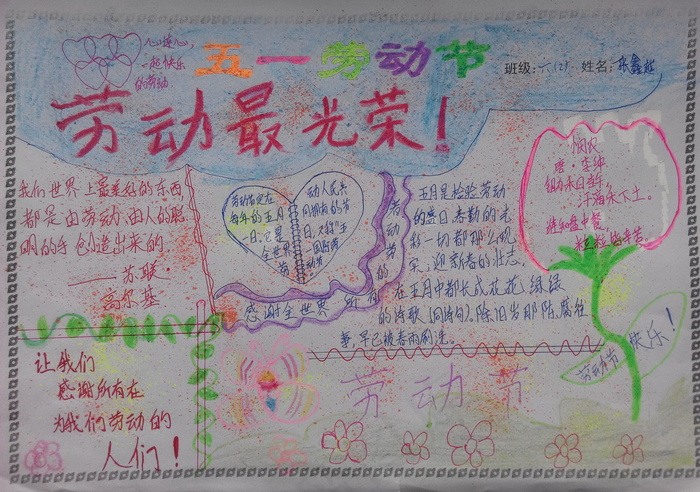 心连心，
一起快乐
的劳动
五一劳动节
班级：六(2) 姓名：张鑫
劳动最光荣！
我们世界上最美好的东西
都是由劳动、由人的聪
明的手创造出来的
——苏联
高尔基
劳动节定在
每年的五月
一日。它是
全世界
劳
动人民共
同拥有的节
日，又称"五
一国际劳
动节
感谢全世界所有的劳动节
五月是检验劳动
的盛日春勤的光
彩一切都那么现
实，迎新春的壮志，
在五月中都长成花花绿绿
的诗歌(同诗句)，陈旧岁那陈腐往
事，早已被春雨刷洗。
悯农
唐 李绅
锄禾日当午，
汗滴禾下土。
谁知盘中餐，
粒粒皆辛苦。
劳动节
快乐！
让我们
感谢所有在
为我们劳动的
人们！
劳动节